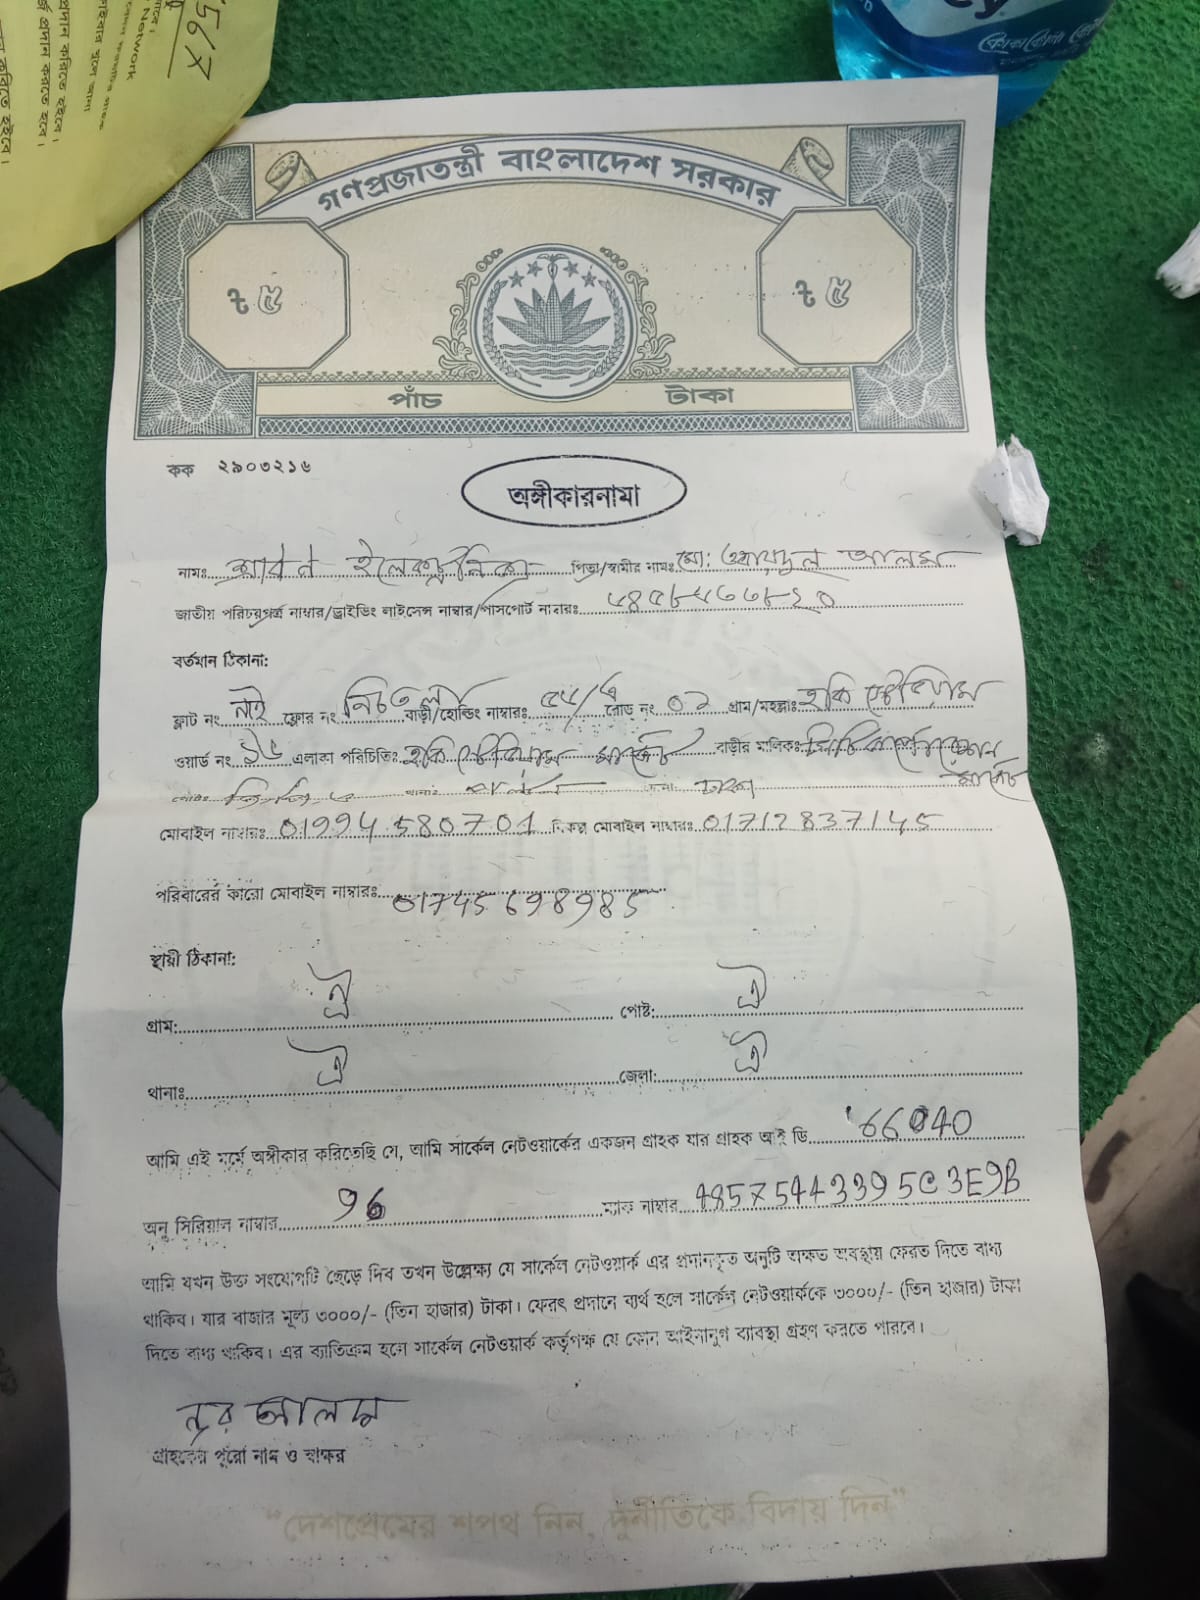 567
Network
গণপ্রজাতন্ত্রী বাংলাদেশ সরকার
৳ ৫
৳ ৫
পাঁচ টাকা
কক ২৯০৩২১৬
অঙ্গীকারনামা
নামঃ শ্রাবন ইলেকট্রনিক্স পিতা/স্বামীর নামঃ মো: আলম
জাতীয় পরিচয়পত্র নাম্বার/ড্রাইভিং লাইসেন্স নাম্বার/পাসপোর্ট নাম্বারঃ
বর্তমান ঠিকানা:
ফ্লাট নং নাই ফ্লোর নং নিচতলা বাড়ী/হোল্ডিং নাম্বারঃ রোড নং ০২ গ্রাম/মহল্লাঃ হকি স্টেডিয়াম
ওয়ার্ড নং এলাকা পরিচিতিঃ হকি স্টেডিয়াম মার্কেট বাড়ীর মালিকঃ
মার্কেট
থানাঃ জেলাঃ ঢাকা
মোবাইল নাম্বারঃ 01994580701 বিকল্প মোবাইল নাম্বারঃ 01712837145
পরিবারের কারো মোবাইল নাম্বারঃ 01745698985
স্থায়ী ঠিকানা:
গ্রাম: ঐ পোষ্ট: ঐ
থানাঃ ঐ জেলা: ঐ
আমি এই মর্মে অঙ্গীকার করিতেছি যে, আমি সার্কেল নেটওয়ার্কের একজন গ্রাহক যার গ্রাহক আই ডি 66040
অনু সিরিয়াল নাম্বার 96 ম্যাক নাম্বার 48575443395C3E9B
আমি যখন উক্ত সংযোগটি ছেড়ে দিব তখন উল্লেক্ষ্য যে সার্কেল নেটওয়ার্ক এর প্রদানকৃত অনুটি অক্ষত অবস্থায় ফেরত দিতে বাধ্য
থাকিব। যার বাজার মূল্য ৩০০০/- (তিন হাজার) টাকা। ফেরৎ প্রদানে ব্যর্থ হলে সার্কেল নেটওয়ার্ককে ৩০০০/- (তিন হাজার) টাকা
দিতে বাধ্য থাকিব। এর ব্যতিক্রম হলে সার্কেল নেটওয়ার্ক কর্তৃপক্ষ যে কোন আইনানুগ ব্যাবস্থা গ্রহণ করতে পারবে।
নূর আলম
গ্রাহকের পুরো নাম ও স্বাক্ষর
“দেশপ্রেমের শপথ নিন, দুর্নীতিকে বিদায় দিন”